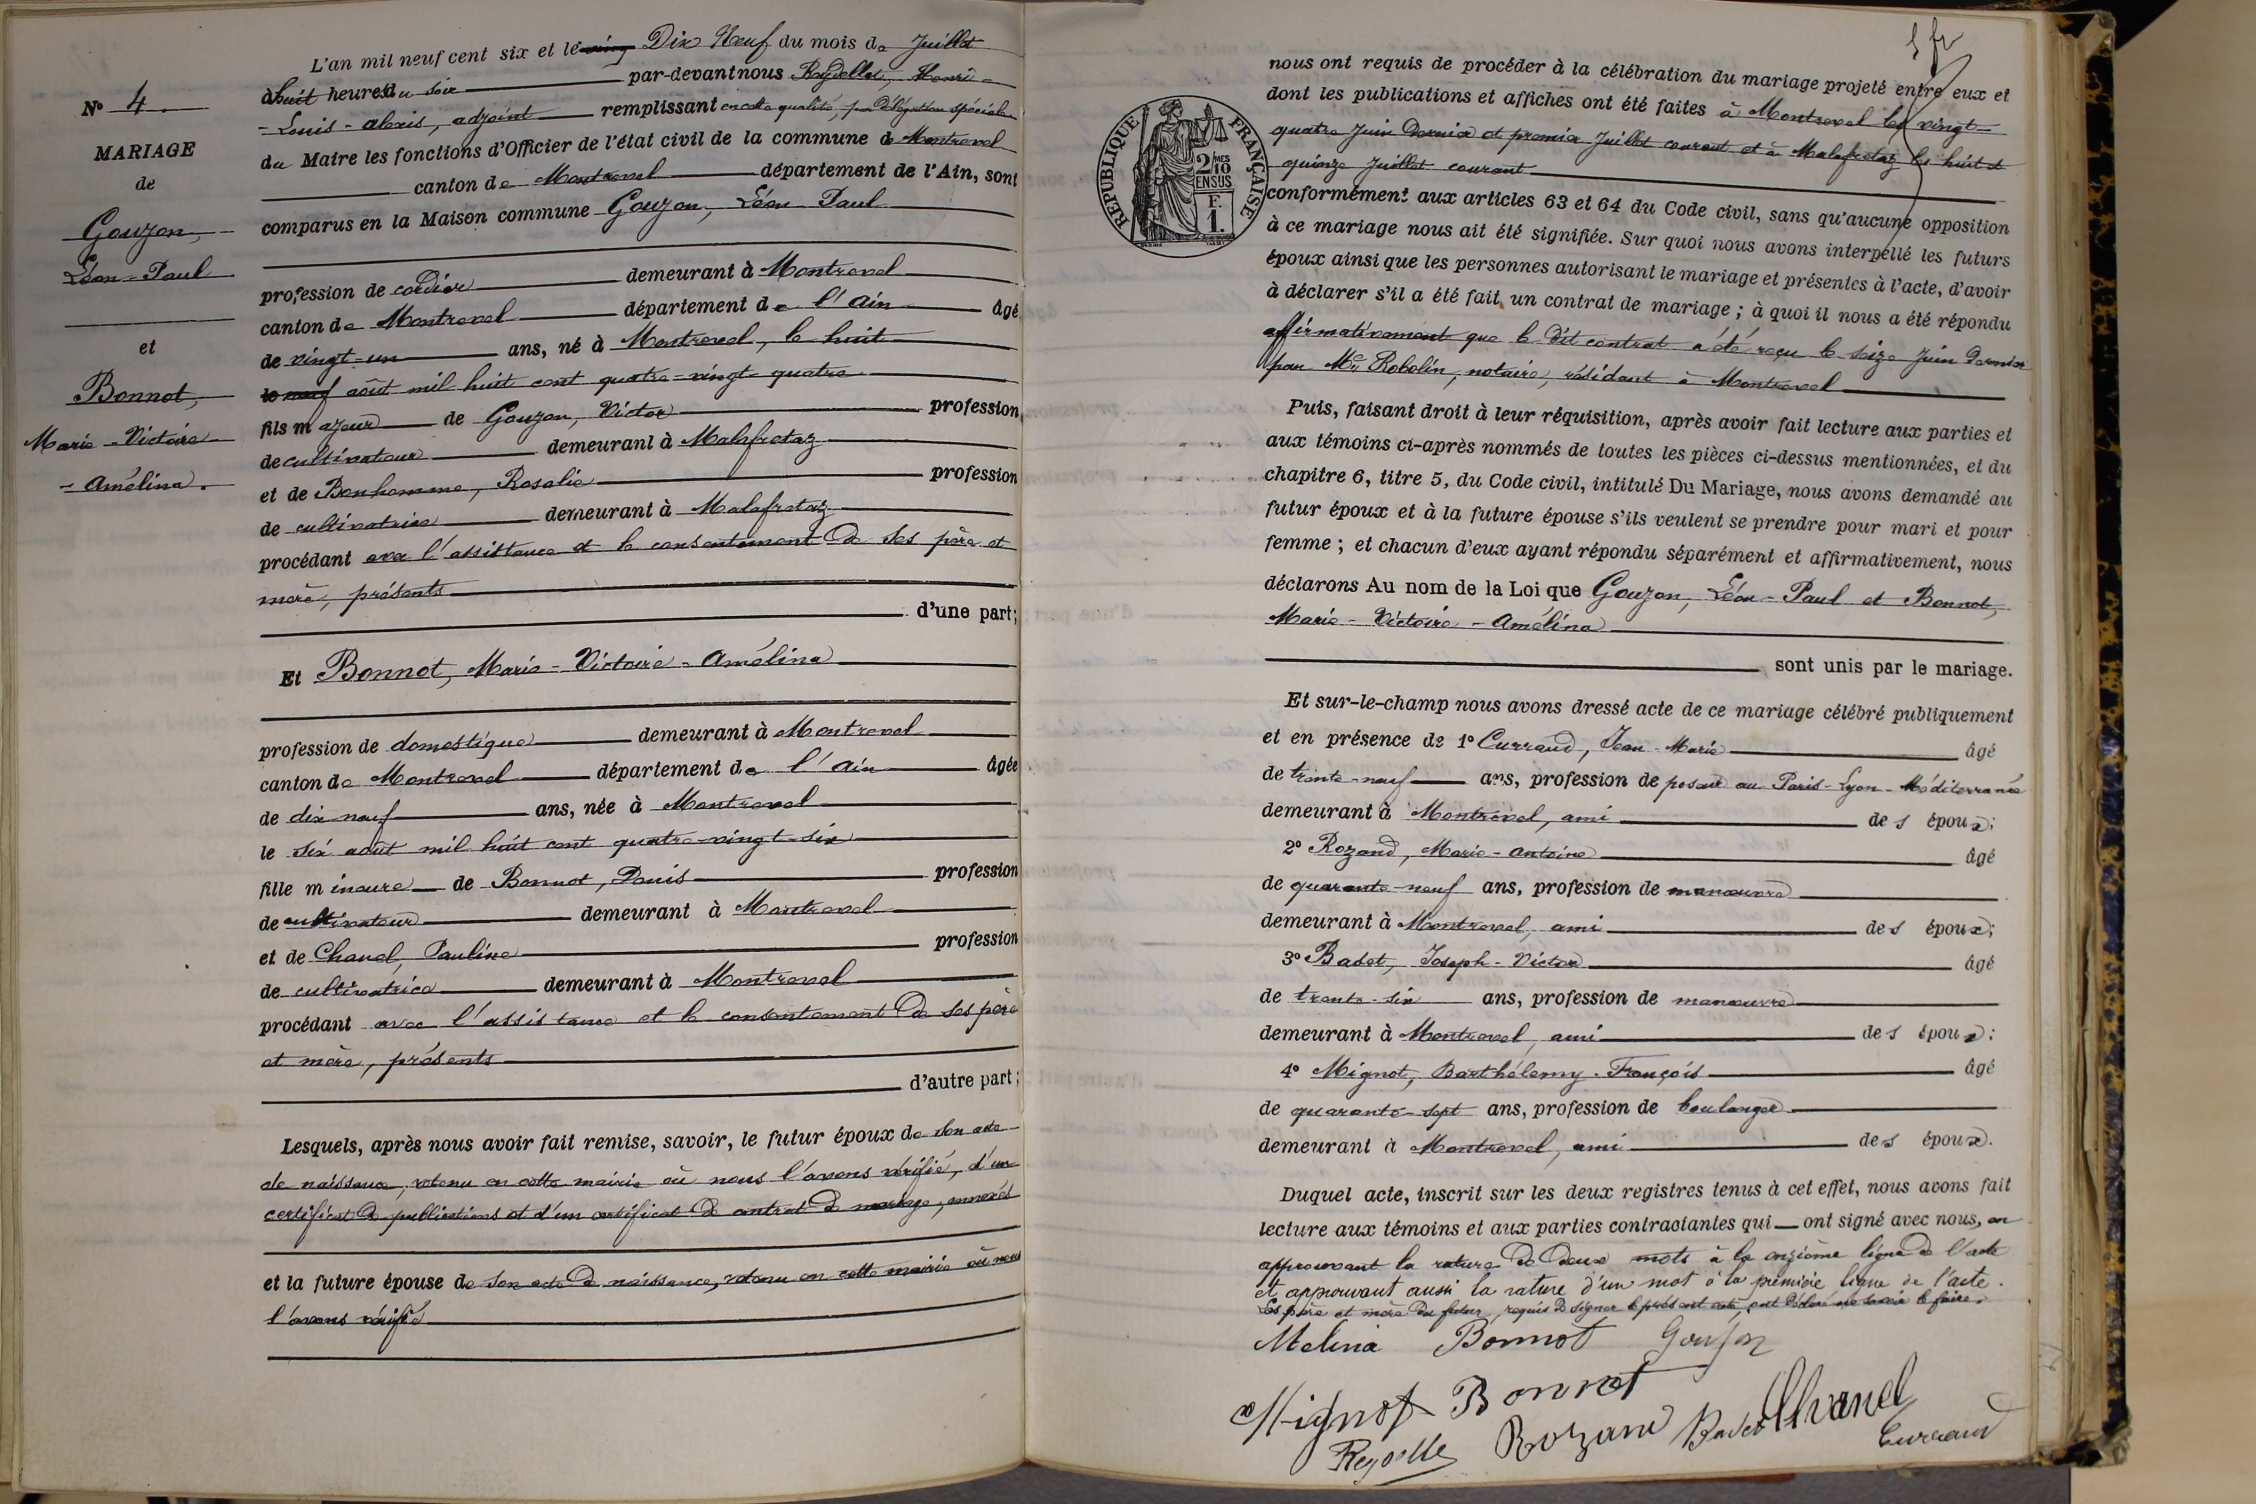 L'an mil neuf cent six et le vingt Dix Neuf du mois de Juillet
à huit heures du soir par-devant nous Henri
- Louis - Alexis, adjoint remplissant en cette qualité, par Délégation spéciale
du Maire les fonctions d'Officier de l'état civil de la commune de Montrevel
canton de Montrevel département de l'Ain, sont
comparus en la Maison commune Gouzon, Léon Paul
profession de cordier demeurant à Montrevel
canton de Montrevel département de l'Ain âgé
de vingt-un ans, né à Montrevel, le huit
le neuf août mil huit cent quatre-vingt-quatre
fils majeur de Gouzon, Victor profession
de cultivateur demeurant à Malafretaz
et de Bonhomme, Rosalie profession
de cultivatrice demeurant à Malafretaz
procédant avec l'assistance et le consentement de ses père et
mère, présents
d'une part;
Et Bonnot, Marie-Victoire-Amélina
profession de domestique demeurant à Montrevel
canton de Montrevel département de l'Ain âgée
de dix-neuf ans, née à Montrevel
le six août mil huit cent quatre-vingt-six
fille mineure de Bonnot, Denis profession
de cultivateur demeurant à Montrevel
et de Chanel, Pauline profession
de cultivatrice demeurant à Montrevel
procédant avec l'assistance et le consentement de ses père
et mère, présents
d'autre part;
Lesquels, après nous avoir fait remise, savoir, le futur époux de son acte
de naissance, retenu en cette mairie où nous l'avons vérifié, d'un
certificat de publications et d'un certificat de contrat de mariage, annexés
et la future épouse de son acte de naissance, retenu en cette mairie où nous
l'avons vérifié
No 4.
MARIAGE
de
Gouzon,
Léon-Paul
et
Bonnot,
Marie-Victoire
- Amélina.
5 fr
REPUBLIQUE FRANÇAISE
2/10
MES
EN SUS
F.
1.
nous ont requis de procéder à la célébration du mariage projeté entre eux et
dont les publications et affiches ont été faites à Montrevel les vingt-
quatre Juin Dernier et premier Juillet courant et à Malafretaz les huit et
quinze Juillet courant
conformément aux articles 63 et 64 du Code civil, sans qu'aucune opposition
à ce mariage nous ait été signifiée. Sur quoi nous avons interpellé les futurs
époux ainsi que les personnes autorisant le mariage et présentes à l'acte, d'avoir
à déclarer s'il a été fait un contrat de mariage; à quoi il nous a été répondu
affirmativement que le Dit contrat a été reçu le seize Juin Dernier
par Me Robolin, notaire, résidant à Montrevel
Puis, faisant droit à leur réquisition, après avoir fait lecture aux parties et
aux témoins ci-après nommés de toutes les pièces ci-dessus mentionnées, et du
chapitre 6, titre 5, du Code civil, intitulé Du Mariage, nous avons demandé au
futur époux et à la future épouse s'ils veulent se prendre pour mari et pour
femme; et chacun d'eux ayant répondu séparément et affirmativement, nous
déclarons Au nom de la Loi que Gouzon, Léon-Paul et Bonnot,
Marie-Victoire-Amélina
sont unis par le mariage.
Et sur-le-champ nous avons dressé acte de ce mariage célébré publiquement
et en présence de 1o Curraud, Jean-Marie âgé
de trente-neuf ans, profession de poseur au Paris-Lyon-Méditerranée
demeurant à Montrevel, ami des époux;
2o Rozand, Marie-Antoine âgé
de quarante-neuf ans, profession de manœuvre
demeurant à Montrevel, ami des époux;
3o Badet, Joseph-Victor âgé
de trente-six ans, profession de manœuvre
demeurant à Montrevel, ami des époux;
4o Mignot, Barthélemy-François âgé
de quarante-sept ans, profession de boulanger
demeurant à Montrevel, ami des époux.
Duquel acte, inscrit sur les deux registres tenus à cet effet, nous avons fait
lecture aux témoins et aux parties contractantes qui ont signé avec nous, en
approuvant la rature de Deux mots à la onzième ligne de l'acte
et approuvant aussi la rature d'un mot à la première ligne de l'acte.
Les père et mère du futur, requis de signer le présent acte, ont Déclaré ne savoir le faire.
Melina Bonnot Gouzon
Mignot Bonnot
Rozand Badet Chanel
Curraud